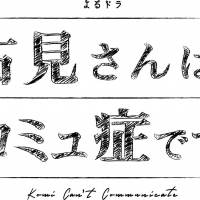 よるドラ
古見さんは
コミュ症です
Komi Can't Communicate